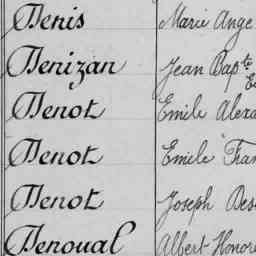 Denis Marie Ange
Denizan Jean Bapte
Denot Emile Alexa
Denot Emile Fran
Denot Joseph Des
Denoual Albert Honoré